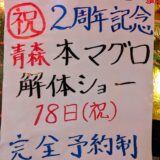 祝 2周年記念
青森本マグロ
解体ショー
18日(祝)
完全予約制